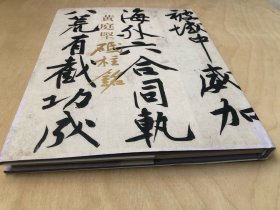 被域中威加
海外六合同軌
黄庭堅
砥柱銘
八荒有截功成